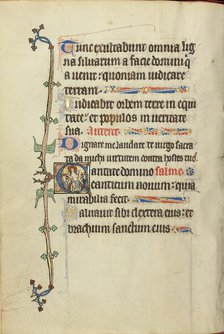 Tunc exultabunt omnia lig
na silvarum a facie domini q
a venit: quoniam iudicare
terram.
Iudicabit orbem terre in equi
tate: et populos in veritate
sua. Averte.
Dignare me laudare te virgo sacra
ta da michi virtutem contra hostes tuos
Cantate domino salme
canticum novum: quia
mirabilia fecit.
Salvavit sibi dextera eius: et
brachium sanctum eius.